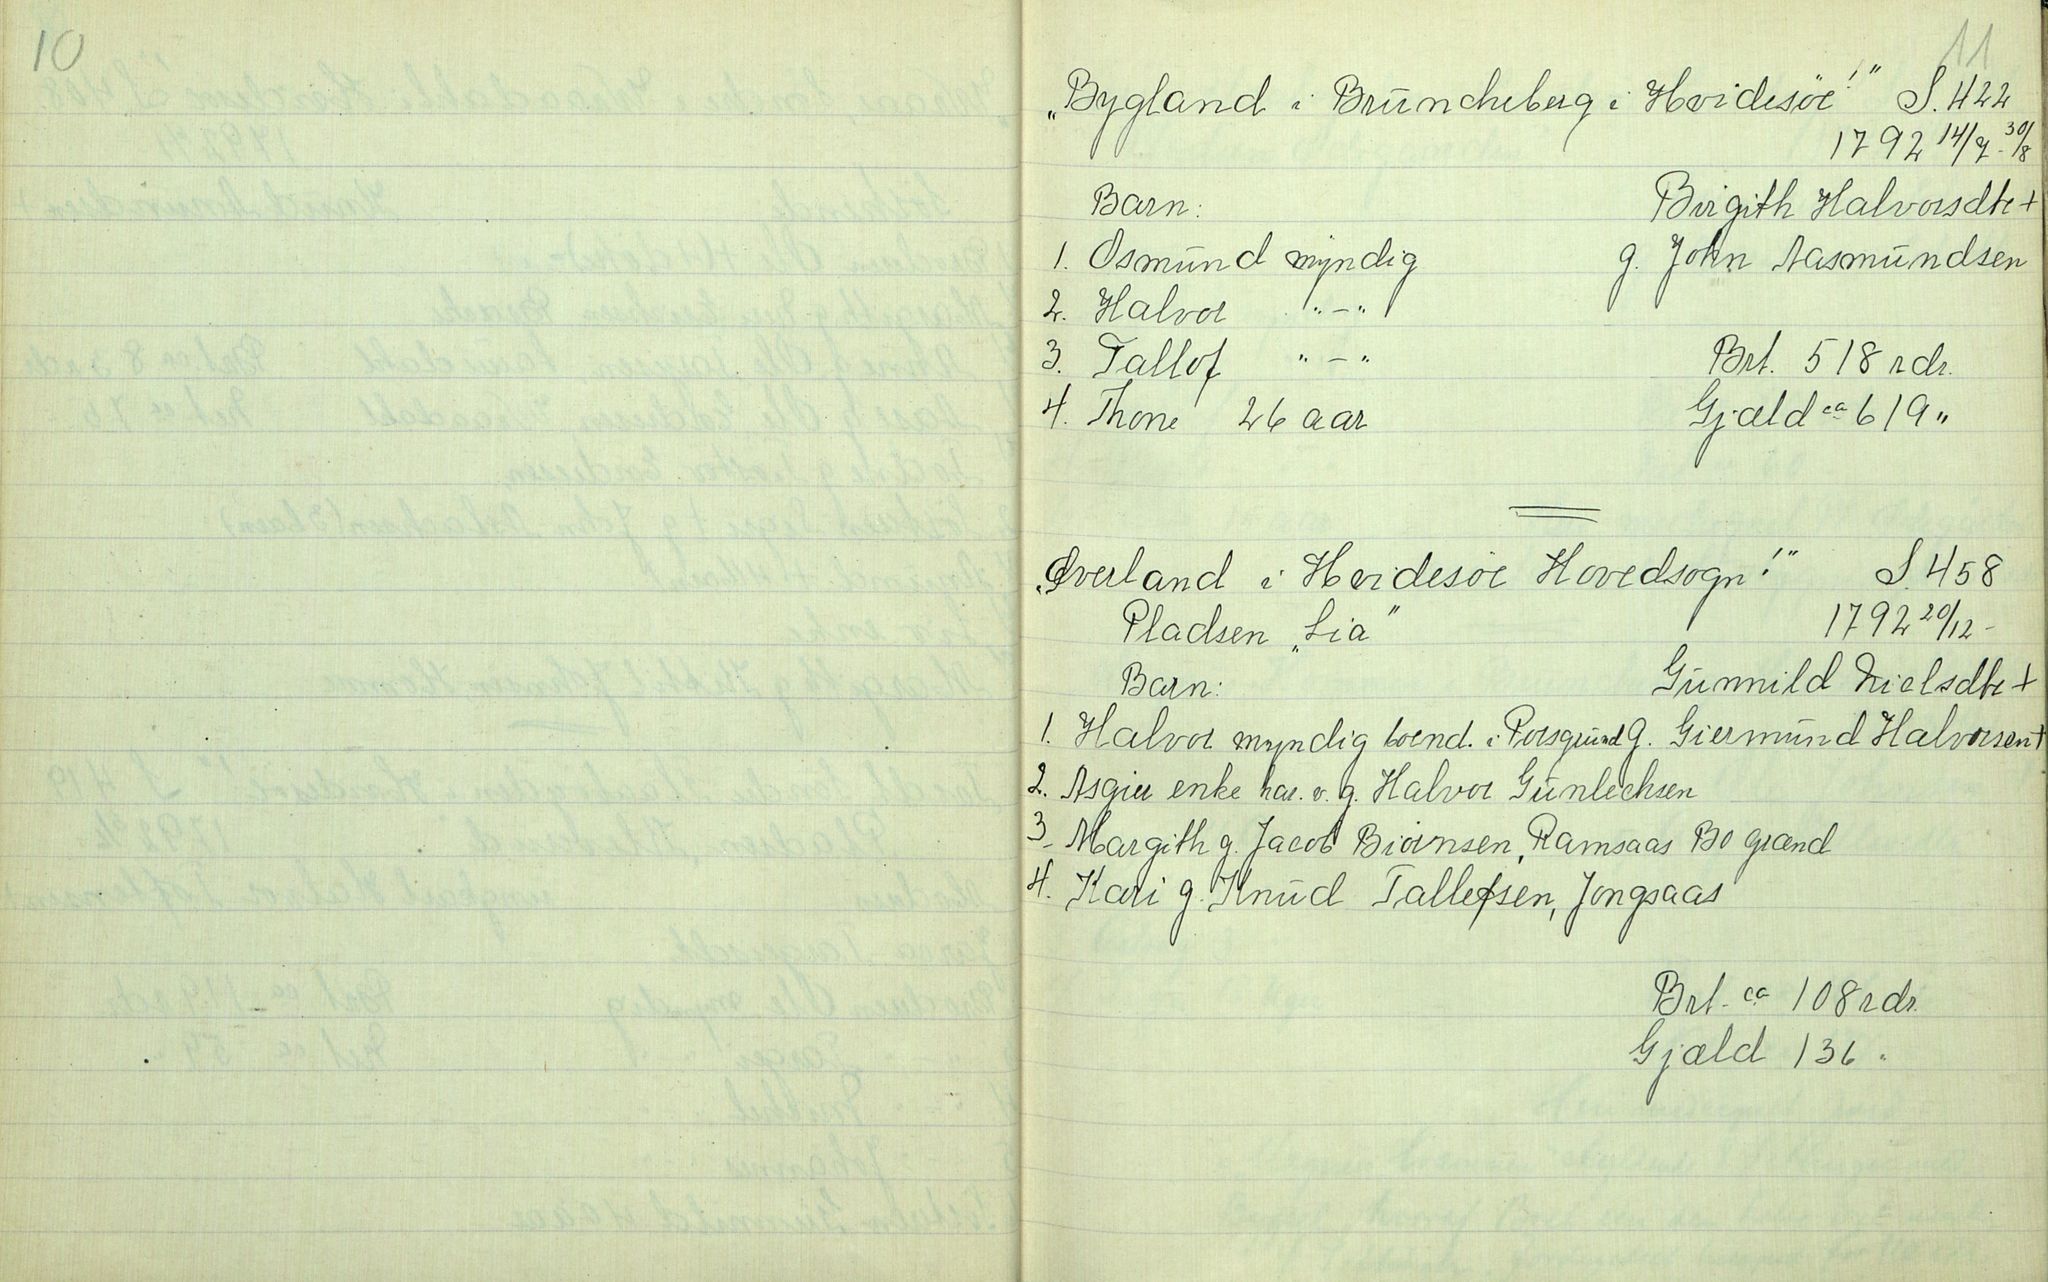 10
11
"Bygland i Brüncheberg i Hvidesöe!" S. 422
1792 14/7 - 30/8
Barn: Birgith Halvorsdtr +
1. Osmünd myndig g. John Aasmündsen
2. Halvor "-"
3. Tallof "-" Brt. 518 rdr.
4. Thone 26 aar Gjæld ca 619 "
"Øverland i Hvidesöe Hovedsogn!" S. 458
Pladsen "Lia" 1792 20/12 -
Barn: Günnild Nielsdtr +
1. Halvor myndig boend. i Porsgründ g. Giermünd Halvorsen +
2. Asgier enke har. v. g. Halvor Günlechsen
3. Margith g. Jacob Biörnsen, Ramsaas Bö grænd
4. Kari g. Knüd Tallefsen, Jongsaas
Brt. ca 108 rdr.
Gjæld 136 "